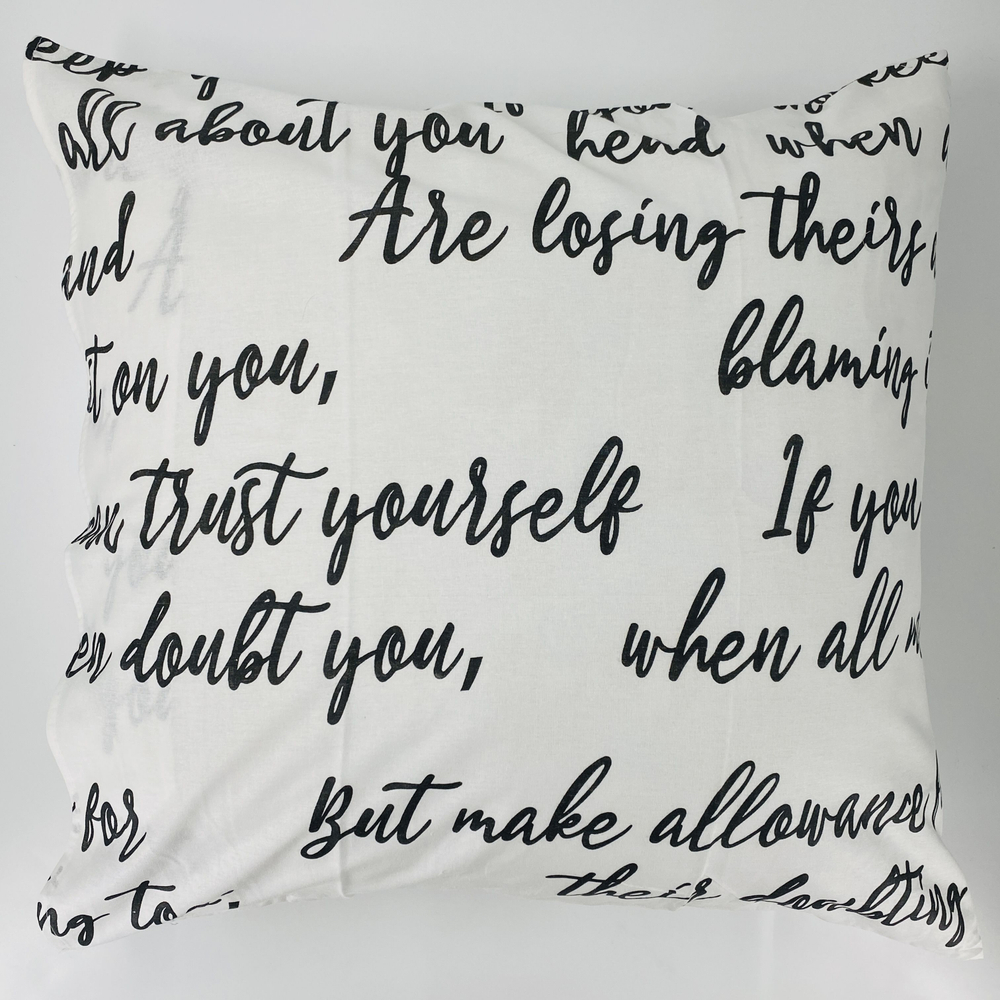 all about you head when
and Are losing theirs
on you, blaming
trust yourself If you
doubt you, when all
for But make allowance
their doubting